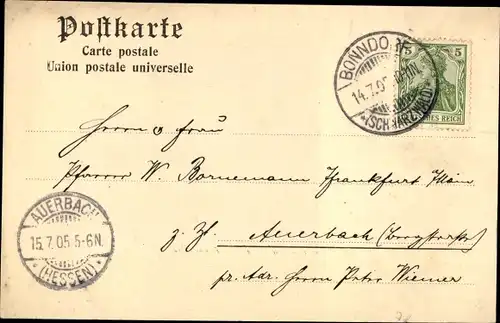 Postkarte
Carte postale
Union postale universelle
BONNDORF
14.7.05 10-11N
*(SCHWARZWALD)*
5 5
DEUTSCHES REICH
Herrn u Frau
Pfarrer W. Bornemann Frankfurt Main
z. Z. Auerbach (Bergstrasse)
pr. Adr. Herrn Peter Wiemer
AUERBACH
15.7.05 5-6N.
* (HESSEN) *